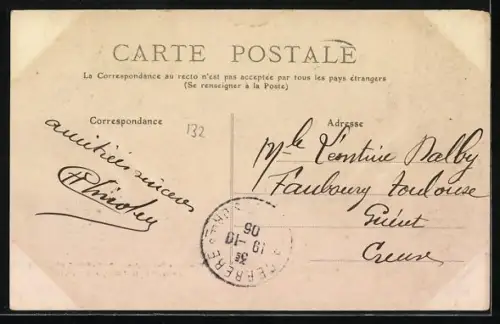 CARTE POSTALE
La Correspondance au recto n'est pas acceptée par tous les pays étrangers
(Se renseigner à la Poste)
Correspondance
132
Adresse
amitiés sincères
Mlle Léontine Dalby
Faubourg Toulouse
Guéret
Creuse
3E
19 -10
05